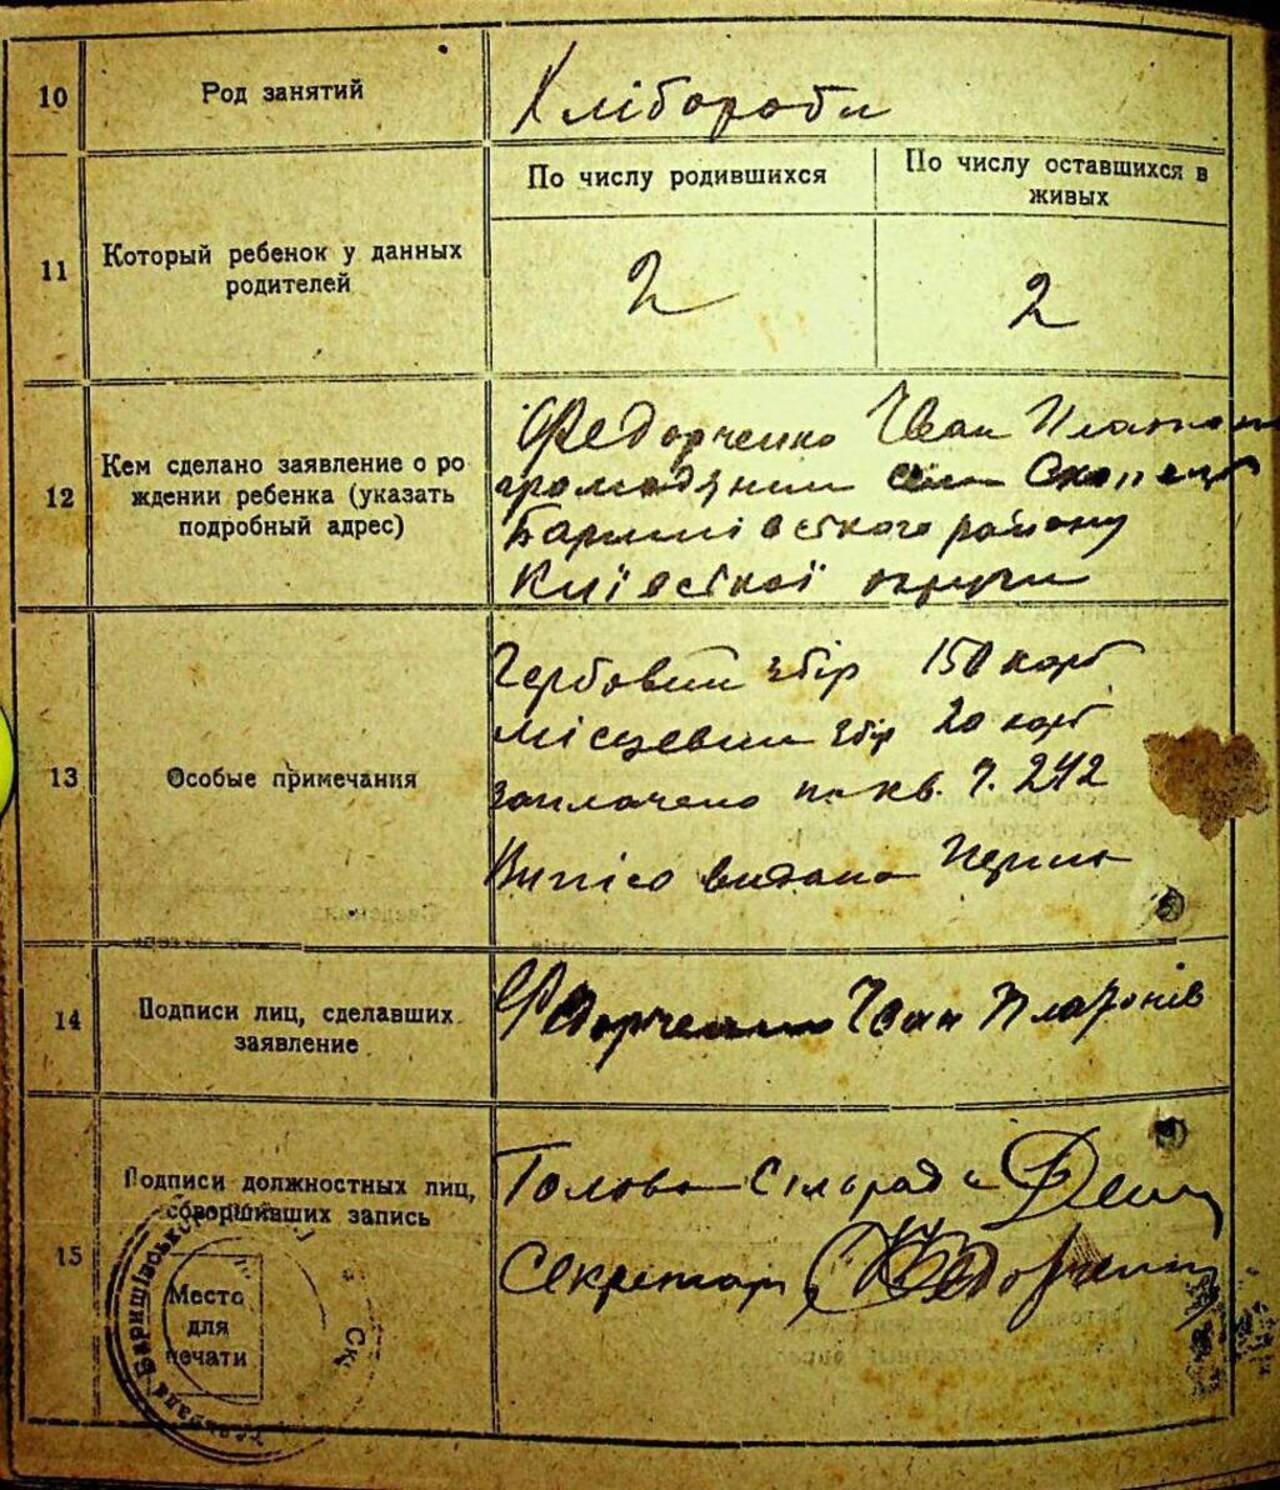 10 Род занятий Хлібороби
11 Который ребенок у данных
родителей
По числу родившихся
По числу оставшихся в
живых
2
2
12 Кем сделано заявление о ро
ждении ребенка (указать
подробный адрес)
Федорченко Іван
громадянин села
Баришівсткого району
Київсткої округи
13 Особые примечания
Гербовий збір 150 карб
місцевий збір 20 карб
заплачено по кв. Ч. 242
видана перша
14 Подписи лиц, сделавших
заявление
Федорченко Іван Платонів
15 Подписи должностных лиц,
совершивших запись
Голова Сільради
Секретар Федорченко
Место
для
печати